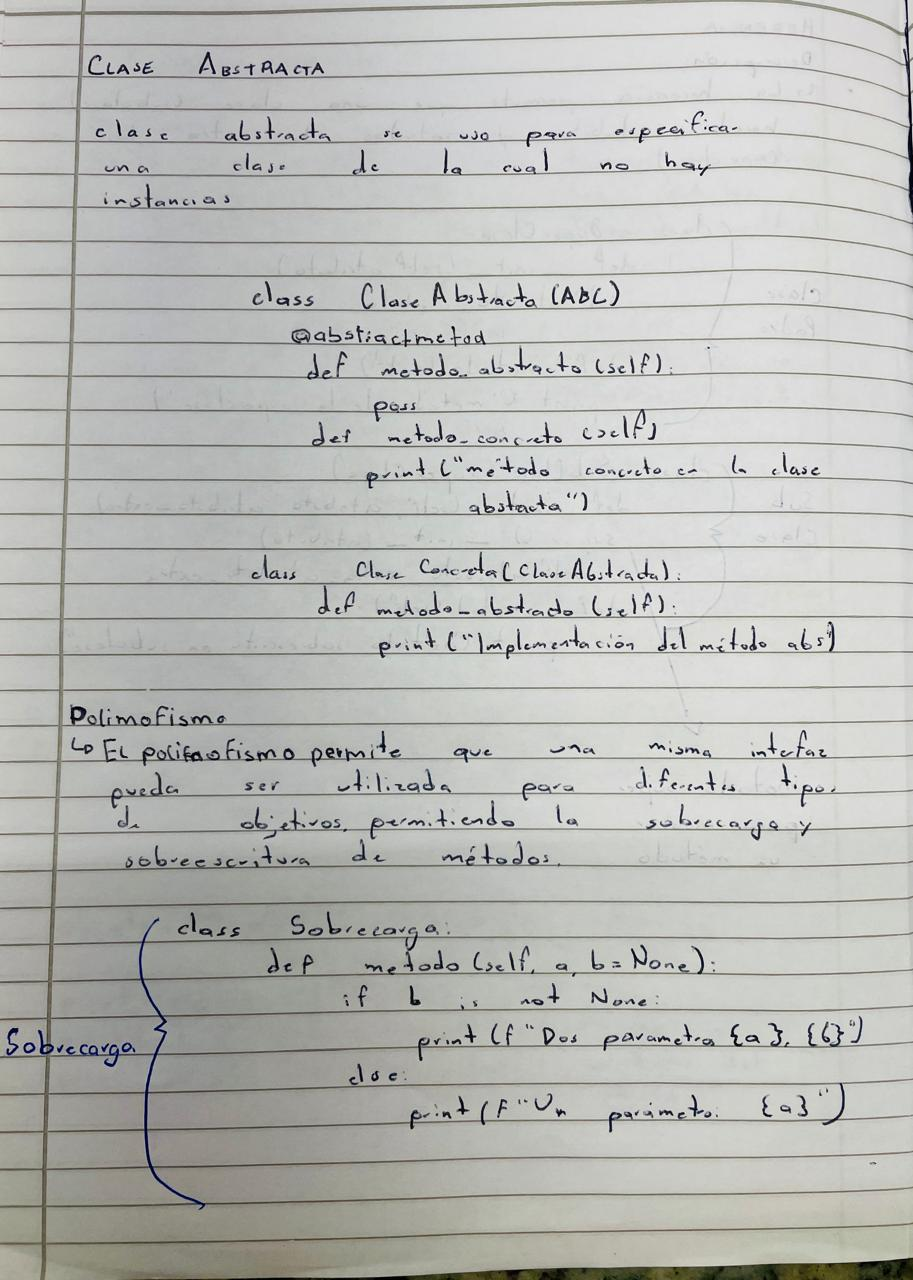 CLASE ABSTRACTA
clase abstracta se usa para especifica-
una clase de la cual no hay
instancias
class Clase Abstracta (ABC)
@abstiactmetod
def metodo_abstracto (self):
pass
def metodo_concreto (self)
print ("método concreto en la clase
abstacta")
class Clase Concreta (Clase Abstracta):
def metodo_abstracto (self):
print ("Implementación del método abs")
Polimofismo
↳ El polimofismo permite que una misma interfaz
pueda ser utilizada para diferentes tipo.
de objetivos, permitiendo la sobrecarga y
sobreescritura de métodos.
class Sobrecarga:
def metodo (self, a, b = None):
if b is not None:
Sobrecarga
print (f "Dos parametra {a}, {b}")
else:
print (F "Un parámetro: {a}")